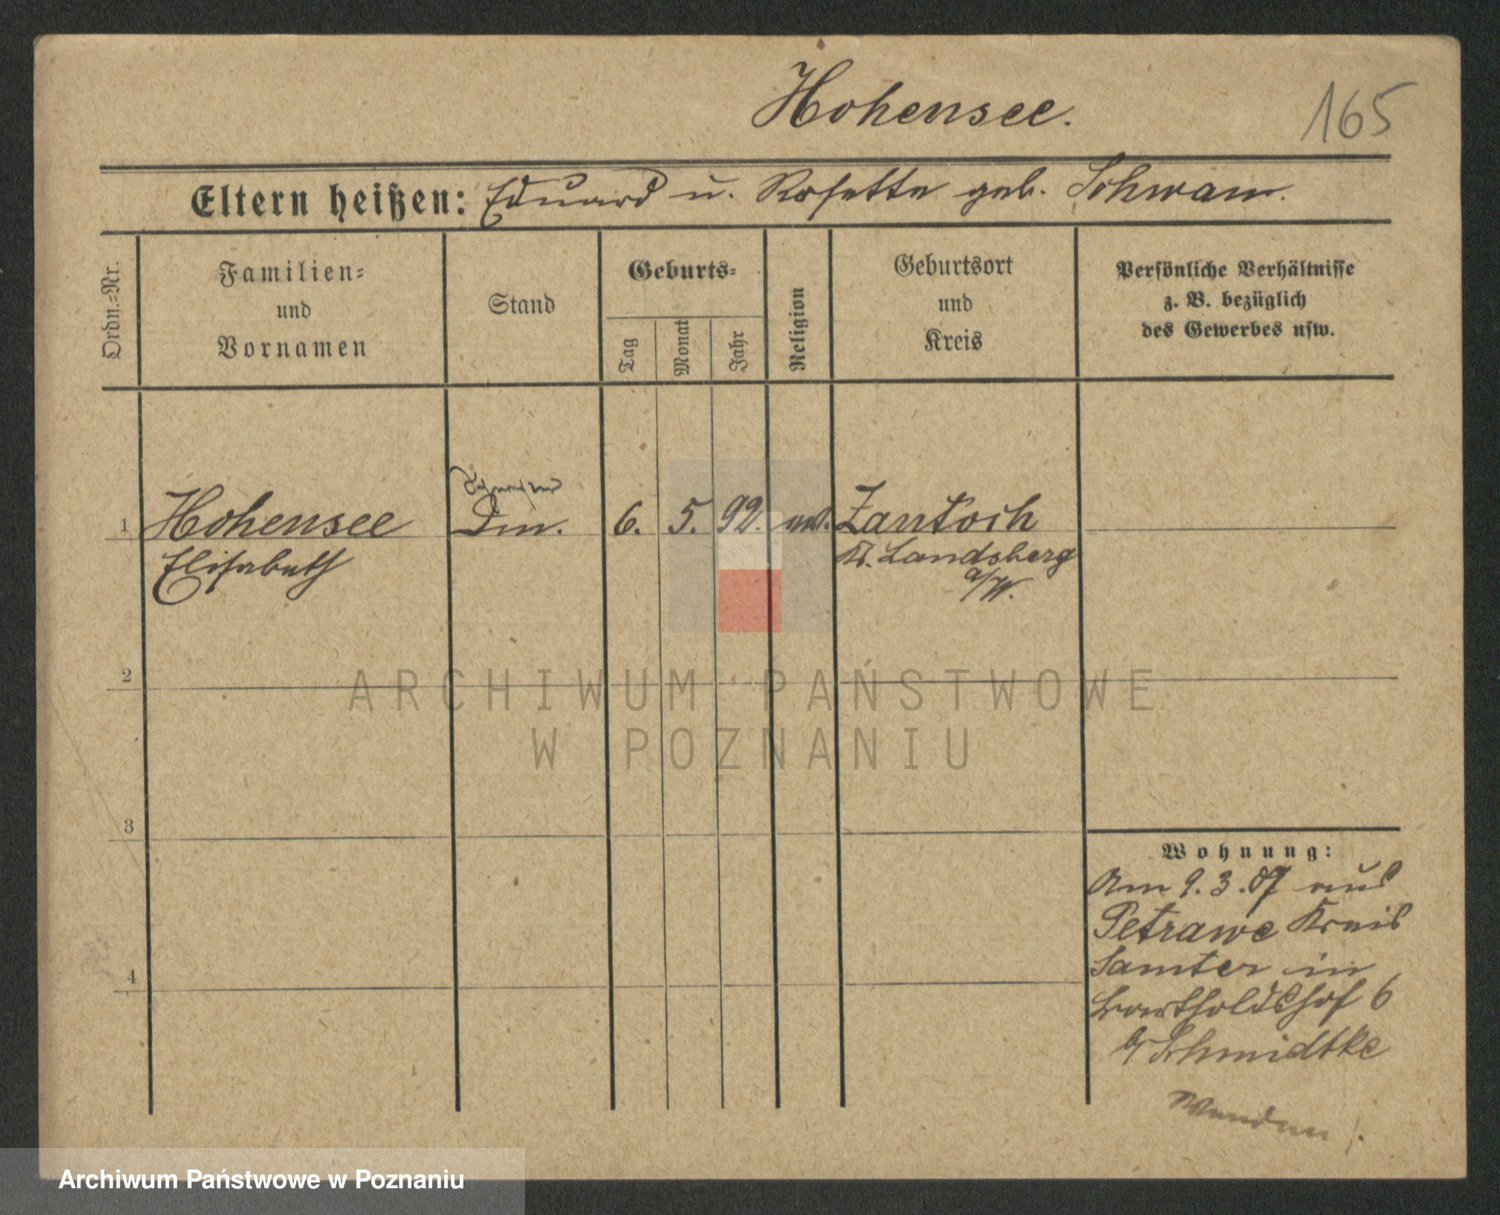 Hohensee.
165
Eltern heißen: Eduard u. Rosette geb. Schwam.
Ordn.=Nr.
Familien=
und
Vornamen
Stand
Geburts=
Tag
Monat
Jahr
Religion
Geburtsort
und
Kreis
Persönliche Verhältnisse
z. B. bezüglich
des Gewerbes usw.
1 Hohensee
Elisabeth
6. 5. 92. ev. Zantoch
Kr. Landsberg
a/W.
2
3
4
Wohnung:
Am 9.3.07 aus
Petrawe Kreis
Samter in
Bartholdshof 6
b/ Schmidtke
Wenden!
ARCHIWUM PAŃSTWOWE
W POZNANIU
Archiwum Państwowe w Poznaniu